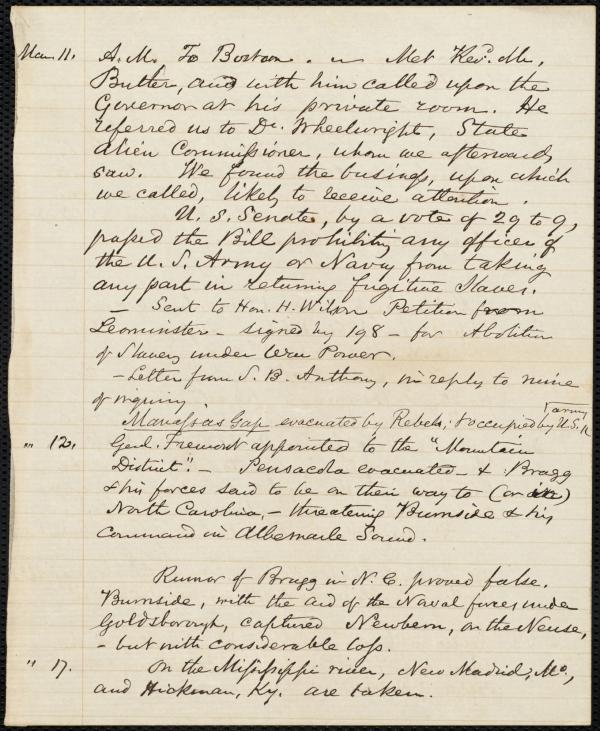 Mar. 11. A.M. To Boston. — Met Rev. Mr.
Butler, and with him called upon the
Governor at his private room. He
referred us to Dr. Wheelwright, State
Alien Commissioner, whom we afterwards
saw. We found the business, upon which
we called, likely to receive attention.
U. S. Senate, by a vote of 29 to 9,
passed the Bill prohibiting any officer of
the U. S. Army or Navy from taking
any part in returning fugitive Slaves.
— Sent to Hon. H. Wilson Petition from
Leominster - signed by 198 - for Abolition
of Slavery under War Power.
- Letter from S. B. Anthony, in reply to mine
of inquiry.
army
Manassas Gap evacuated by Rebels; & occupied by U.S.
" 12. Genl. Fremont appointed to the "Mountain
District". — Pensacola evacuated - & Bragg
& his forces said to be on their way to (or in)
North Carolina, - threatening Burnside & his
command in Albemarle Sound.
Rumor of Bragg in N. C. proved false.
Burnside, with the aid of the Naval forces under
Goldsborough, captured Newbern, on the Neuse,
- but with considerable loss.
" 17. On the Mississippi river, New Madrid, Mo.,
and Hickman, Ky. are taken.